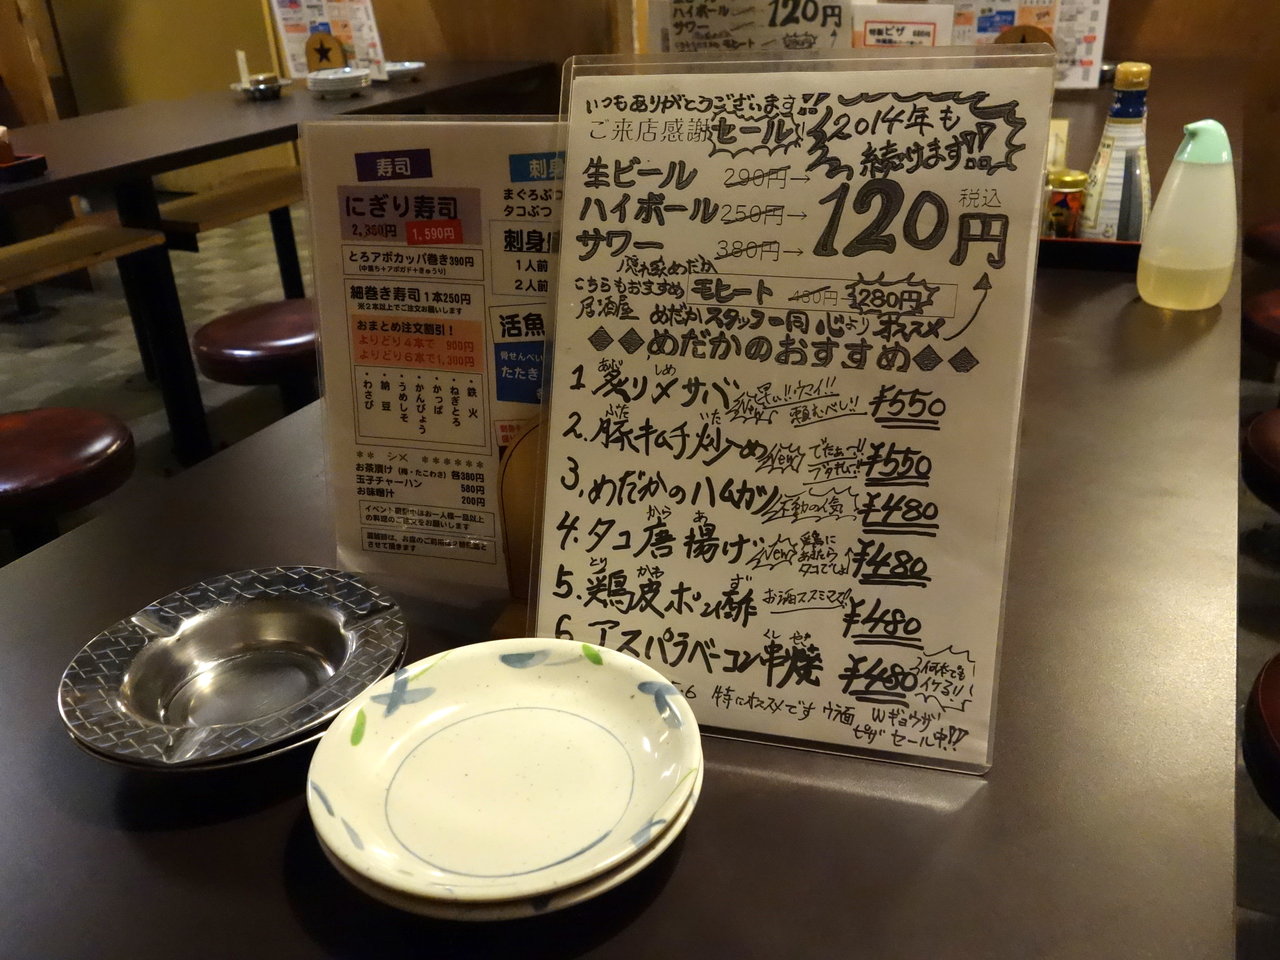 いつもありがとうございます!!
ご来店感謝セール
2014年も
続けます!!
生ビール 290円→
ハイボール 250円→
サワー 380円→
120円
税込
隠れ家めだか
こちらもおすすめ モヒート 480円→280円
居酒屋 めだかスタッフ一同 心より オススメ
◆◆めだかのおすすめ◆◆
1 炙りメサバ ¥550
あぶ しめ
2. 豚キムチ炒め New ¥550
ぶた いた
3. めだかのハムカツ 不動の人気 ¥480
4. タコ唐揚げ New 鶏に あきたら タコでしょ ¥480
から あ
5. 鶏皮ポン酢 お酒ススミマス!! ¥480
とり かわ ず
6 アスパラベーコン串焼 ¥480 何本でも イケる!!
くし やき
特にオススメです ウラ面 Wギョウザ
ピザ セール中!!
寿司
にぎり寿司
2,380円 1,590円
とろアボカッパ巻き390円
(中落ち+アボガド+きゅうり)
細巻き寿司1本250円
※2本以上でご注文お願いします
おまとめ注文割引!
よりどり4本で 900円
よりどり6本で1,300円
・鉄火
・ねぎとろ
・かっぱ
・かんぴょう
・うめしそ
・納豆
・わさび
** シメ ******
お茶漬け(梅・たこわさ)各380円
玉子チャーハン 580円
お味噌汁 200円
イベント期間中はお一人様一品以上
の料理のご注文をお願いします
混雑時は、お席のご利用は2時間制と
させて頂きます
刺身
まぐろぶつ
タコぶつ
刺身
1人前
2人前
活魚
骨せんべい
たたき
ハイボール
サワー
120円
特製ピザ 680円